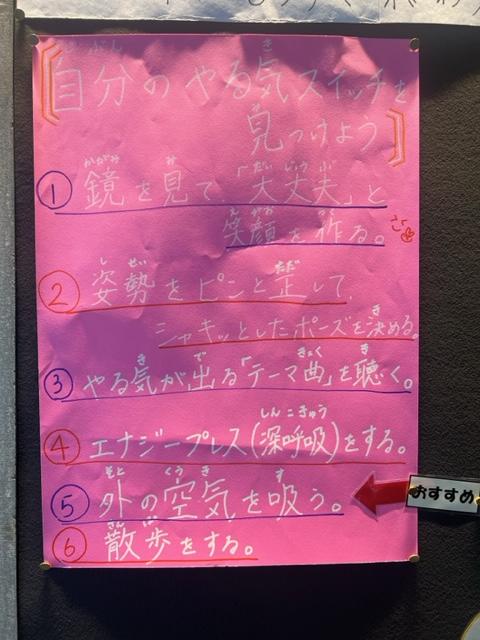 【自分のやる気スイッチを
見つけよう】
① 鏡を見て「大丈夫」と
笑顔を作る。
② 姿勢をピンと正して、
シャキッとしたポーズを決める。
③ やる気が出る「テーマ曲」を聴く。
④ エナジーブレス(深呼吸)をする。
⑤ 外の空気を吸う。
おすすめ
⑥ 散歩をする。